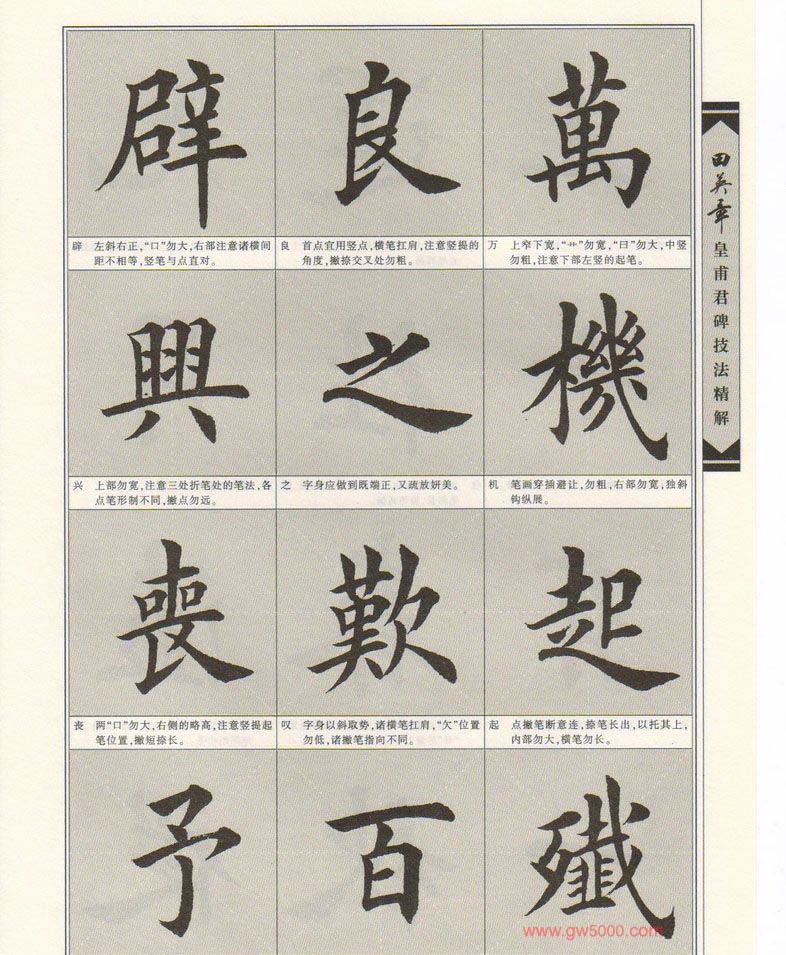 辟
良
萬
辟 左斜右正,“口”勿大,右部注意诸横间
距不相等,竖笔与点直对。
良 首点宜用竖点,横笔扛肩,注意竖提的
角度,撇捺交叉处勿粗。
万 上窄下宽,“艹”勿宽,“曰”勿大,中竖
勿粗,注意下部左竖的起笔。
興
之
機
兴 上部勿宽,注意三处折笔处的笔法,各
点笔形制不同,撇点勿远。
之 字身应做到既端正,又疏放妍美。
机 笔画穿插避让,勿粗,右部勿宽,独斜
钩纵展。
喪
歎
起
丧 两“口”勿大,右侧的略高,注意竖提起
笔位置,撇短捺长。
叹 字身以斜取势,诸横笔扛肩,“欠”位置
勿低,诸撇笔指向不同。
起 点撇笔断意连,捺笔长出,以托其上,
内部勿大,横笔勿长。
予
百
殲
田英章
皇甫君碑技法精解
www.gw5000.com